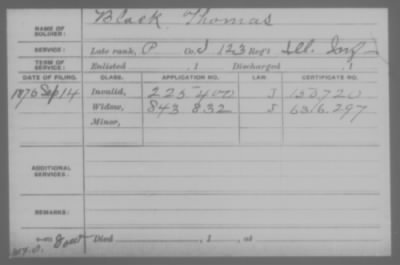 NAME OF SOLDIER: Black, Thomas
SERVICE: Late rank, P Co. I 123 Reg't Ill. Inf
TERM OF SERVICE: Enlisted , 1 Discharged , 1
DATE OF FILING. CLASS. APPLICATION NO. LAW. CERTIFICATE NO.
1876 Sep 14 Invalid, 225 400 J
Widow, 843 832 J
Minor,
ADDITIONAL SERVICES.
REMARKS:
Died , 1 , at